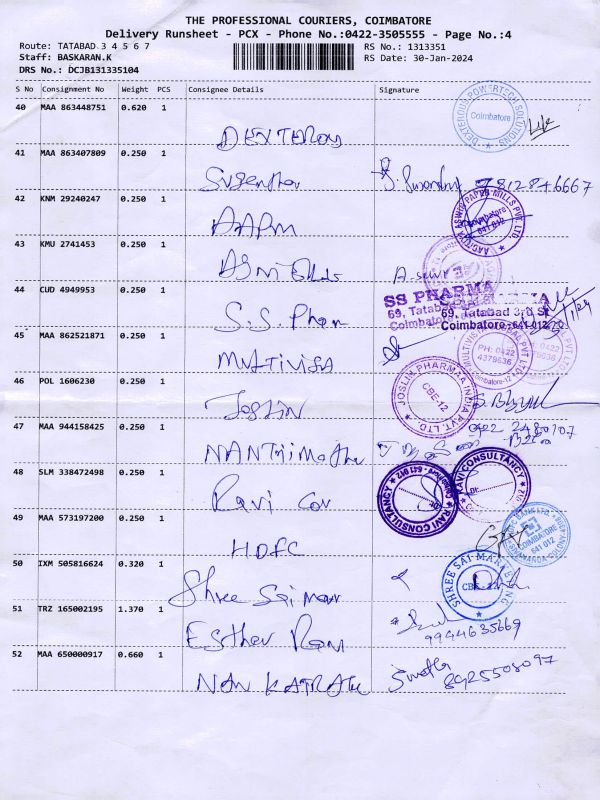 THE PROFESSIONAL COURIERS, COIMBATORE
Delivery Runsheet - PCX - Phone No.:0422-3505555 - Page No.:4
Route: TATABAD 3 4 5 6 7 RS No.: 1313351
Staff: BASKARAN.K RS Date: 30-Jan-2024
DRS No.: DCJB131335104
S No Consignment No Weight PCS Consignee Details Signature
40 MAA 863448751 0.620 1
DEXTEROUS POWERTECH SOLUTIONS Coimbatore
DEXTEROUS
41 MAA 863407809 0.250 1
Sugantha 78128 46667
42 KNM 29240247 0.250 1
AARM
PAPER MILLS PVT. LTD Coimbatore 641 012
43 KMU 2741453 0.250 1
44 CUD 4949953 0.250 1
SS PHARMA
69, Tatabad 3rd St
Coimbatore-641 012
S.S. Pham
45 MAA 862521871 0.250 1
PH: 0422 4379636
Coimbatore-12
MULTIVISTA
46 POL 1606230 0.250 1
JOSLIN PHARMAA INDIA PVT. LTD. CBE-12
Joslin
47 MAA 944158425 0.250 1
0422 2480107
48 SLM 338472498 0.250 1
RAVI CONSULTANCY Coimbatore - 641 012
RAVI CONSULTANCY
Ravi Con
49 MAA 573197200 0.250 1
HDFC BANK LTD. COIMBATORE 641 012
HDFC
50 IXM 505816624 0.320 1
SHREE SAI MARKETING CBE-12
Shree Sai mar
51 TRZ 165002195 1.370 1
Esther Rani 9944635669
52 MAA 650000917 0.660 1
Swetha 8925508097